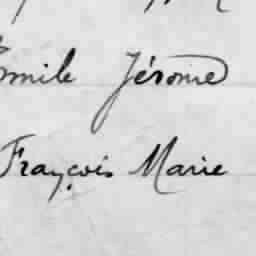 Emile Jérome
François Marie